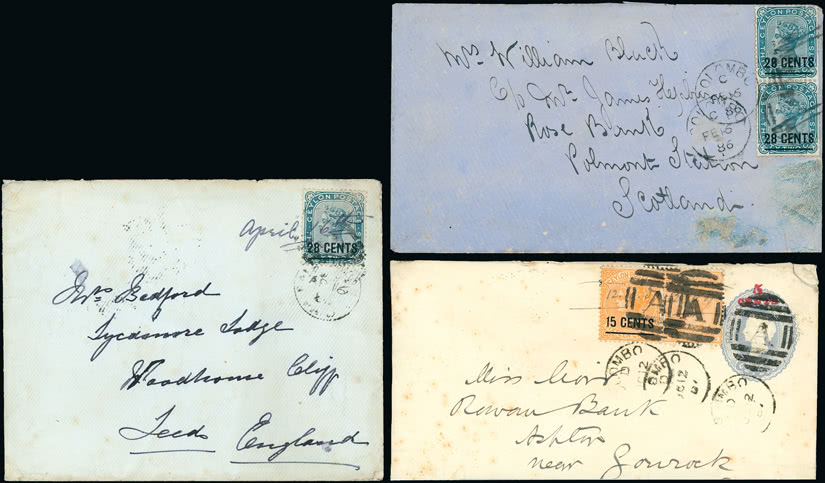 CEYLON POSTAGE
28 CENTS
CEYLON POSTAGE
28 CENTS
COLOMBO
C
FE 6
86
Mrs William Bluck
C/o Mr. James
Rose Bank
Polmont Station
Scotland
CEYLON POSTAGE
28 CENTS
April 6th
Mrs Bedford
Sycamore Lodge
Woodhouse Cliff
Leeds England
15 CENTS
5
A
COLOMBO
D
DE 12
Miss Moir
Rowan Bank
Ashton
near Gourock